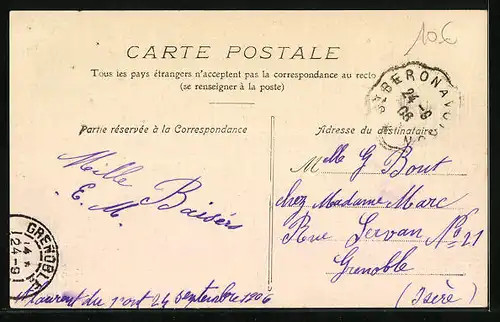 10€
CARTE POSTALE
Tous les pays étrangers n'acceptent pas la correspondance au recto
(se renseigner à la poste)
Partie réservée à la Correspondance
Adresse du destinataire
24-9
08
Mille Baisers
E. M.
Mlle G Bout
chez Madame Marc
Rue Servan No 21
Grenoble
(Isère)
GRENOBLE
24-9
Laurent du Pont 24 septembre 1908